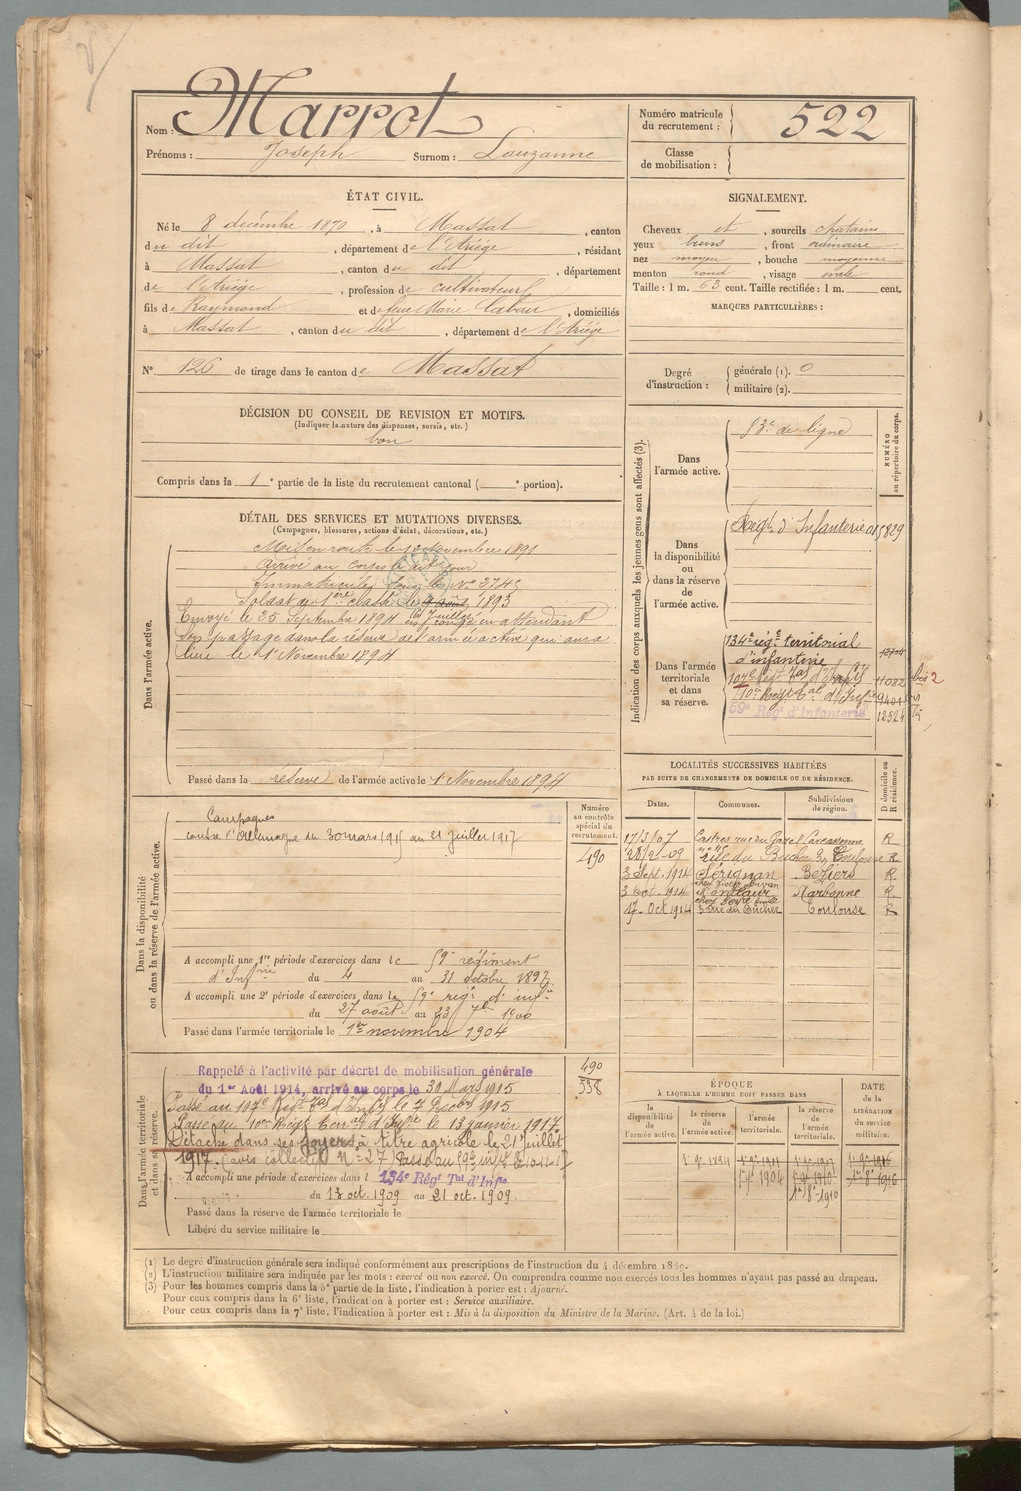 Nom : Marrot
Prénoms : Joseph Surnom : Lauzanne
Numéro matricule du recrutement : 522
Classe de mobilisation :
ÉTAT CIVIL.
Né le 8 décembre 1870, à Massat, canton
du dit, département de l'Ariége, résidant
à Massat, canton du dit, département
de l'Ariége, profession de cultivateur
fils de Raymond et de feue Marie Cabau, domiciliés
à Massat, canton du dit, département de l'Ariége
N° 126 de tirage dans le canton de Massat
SIGNALEMENT.
Cheveux et, sourcils chatains
yeux bruns, front ordinaire
nez moyen, bouche moyenne
menton rond, visage ovale
Taille : 1 m. 63 cent. Taille rectifiée : 1 m. cent.
MARQUES PARTICULIÈRES :
Degré d'instruction : générale (1). 0
militaire (2).
DÉCISION DU CONSEIL DE REVISION ET MOTIFS.
(Indiquer la nature des dispenses, sursis, etc.)
bon
Compris dans la 1e partie de la liste du recrutement cantonal ( e portion).
DÉTAIL DES SERVICES ET MUTATIONS DIVERSES.
(Campagnes, blessures, actions d'éclat, décorations, etc.)
Dans l'armée active.
Mis en route le 12 Novembre 1891
Arrivé au corps le dit jour
Immatriculé sous le N° 2745
Soldat de 1ère classe le 9 août 1893
Envoyé le 25 Septembre 1894 en congé en attendant
son passage dans la réserve de l'armée active qui aura
lieu le 1 Novembre 1894
Passé dans la réserve de l'armée active le 1 Novembre 1894
Indication des corps auxquels les jeunes gens sont affectés (3).
NUMÉRO au répertoire du corps.
Dans l'armée active. 83e de ligne
Dans la disponibilité ou dans la réserve de l'armée active.
Régt d'Infanterie 15829
Dans l'armée territoriale et dans sa réserve.
134e régt territorial
d'infanterie
107e Régt Tal d'Infie 11082 bis 2
10e Régt Tal d'Infie 9401
59e Régt d'Infanterie 12524
LOCALITÉS SUCCESSIVES HABITÉES
PAR SUITE DE CHANGEMENTS DE DOMICILE OU DE RÉSIDENCE.
Dates. Communes. Subdivisions de région. D domicile ou R résidence.
17/3/07 Castres rue du Gazel Carcassonne R
28/2-09 rue du Bucher 3, Toulouse R
3 Sept. 1914 Sérignan Béziers R
3 Oct. 1914 Narbonne R
17 Oct 1914 3 rue du Bucher Toulouse R
Dans la disponibilité ou dans la réserve de l'armée active.
Numéro au contrôle spécial du recrutement.
490
Campagnes
contre l'Allemagne du 30 mars 1915 au 21 juillet 1917
A accompli une 1re période d'exercices dans le 59e régiment
d'Infrie du 4 au 31 octobre 1897
A accompli une 2e période d'exercices dans le 59e régt d'infie
du 27 août au 23 7bre 1900
Passé dans l'armée territoriale le 1er novembre 1904
Dans l'armée territoriale et dans sa réserve.
490
558
Rappelé à l'activité par décret de mobilisation générale
du 1er Août 1914, arrivé au corps le 30 Mars 1915
Passé au 107e Régt Tal d'Infie le 7 Xbre 1915
Passé au 10e Régt Terral d'Infie le 13 janvier 1917
Détaché dans ses foyers à titre agricole le 21 Juillet
1917. (avis collectif N° 27) Passé au 59e inf
A accompli une période d'exercices dans l 134e Régt Tal d'Infie
du 13 oct. 1909 au 21 oct. 1909.
Passé dans la réserve de l'armée territoriale le
Libéré du service militaire le
ÉPOQUE
À LAQUELLE L'HOMME DOIT PASSER DANS
la disponibilité de l'armée active. la réserve de l'armée active. l'armée territoriale. la réserve de l'armée territoriale.
DATE de la LIBÉRATION du service militaire.
1er 9bre 1894 1er 9bre 1904
1er 8bre 1910 1er 8bre 1916
(1) Le degré d'instruction générale sera indiqué conformément aux prescriptions de l'instruction du 4 décembre 1889.
(2) L'instruction militaire sera indiquée par les mots : exercé ou non exercé. On comprendra comme non exercés tous les hommes n'ayant pas passé au drapeau.
(3) Pour les hommes compris dans la 5e partie de la liste, l'indication à porter est : Ajourné.
Pour ceux compris dans la 6e liste, l'indication à porter est : Service auxiliaire.
Pour ceux compris dans la 7e liste, l'indication à porter est : Mis à la disposition du Ministre de la Marine. (Art. 4 de la loi.)